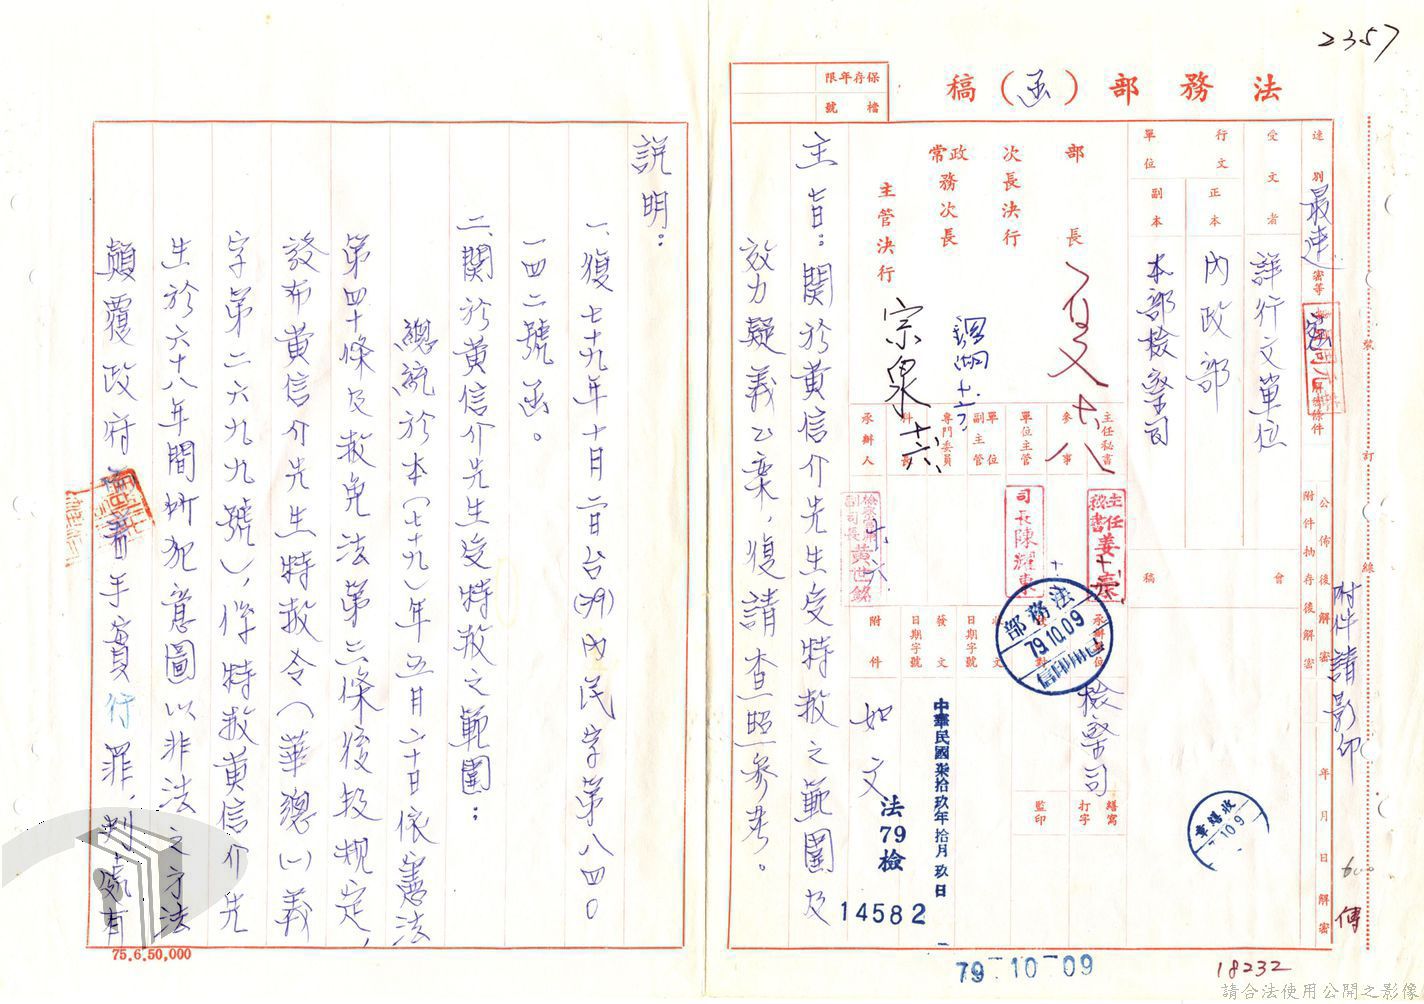 2357
法務部（函）稿
保存年限
檔號
速別
最速
密等
密
解密條件
公佈後解密
附件抽存後解密
年月日解密
受文者
詳行文單位
行文單位
正本
內政部
副本
本部檢察司
附件請影印
部長
次長決行
政務次長
常
主管決行
宗泉 十六
主任秘書
參事
單位主管
單位副主管
專門委員
科長
承辦人
主任秘書姜
司長陳耀東
副司長黃世銘
會
稿
承辦單位
檢察司
法務部
79.10.09
發文
日期字號
收文
日期字號
附件
如文
繕寫
打字
監印
中華民國柒拾玖年拾月玖日
法79檢
14582
主旨：關於黃信介先生受特赦之範圍及
效力疑義乙案，復請查照參考。
79-10-09
18232
傳
裝
訂
線
說明：
一、復七十九年十月二日台(79)內民字第八四〇
一四二號函。
二、關於黃信介先生受特赦之範圍：
總統於本（七十九）年五月二十日依憲法
第四十條及赦免法第三條後段規定，
發布黃信介先生特赦令（華總㈠義
字第二六九九號），係特赦黃信介先
生於六十八年間所犯意圖以非法之方法
顛覆政府而著手實行罪，判處有
75.6.50,000
請合法使用公開之影像